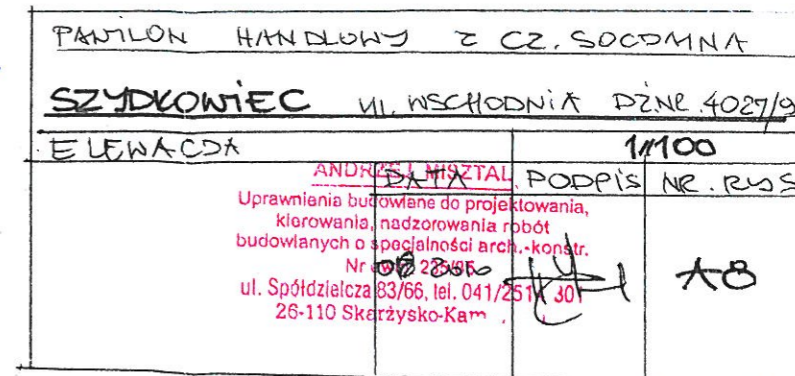 PAWILON HANDLOWY Z CZ. SOCJALNA
SZYDŁOWIEC UL. WSCHODNIA DZ.NR. 4027/9
ELEWACJA 1:100
ANDRZEJ MISZTAL
DATA PODPIS NR. RYS
Uprawnienia budowlane do projektowania,
kierowania, nadzorowania robót
budowlanych o specjalności arch.-konstr.
Nr
2010 A8
ul. Spółdzielcza 83/66, tel. 041/251
26-110 Skarżysko-Kam